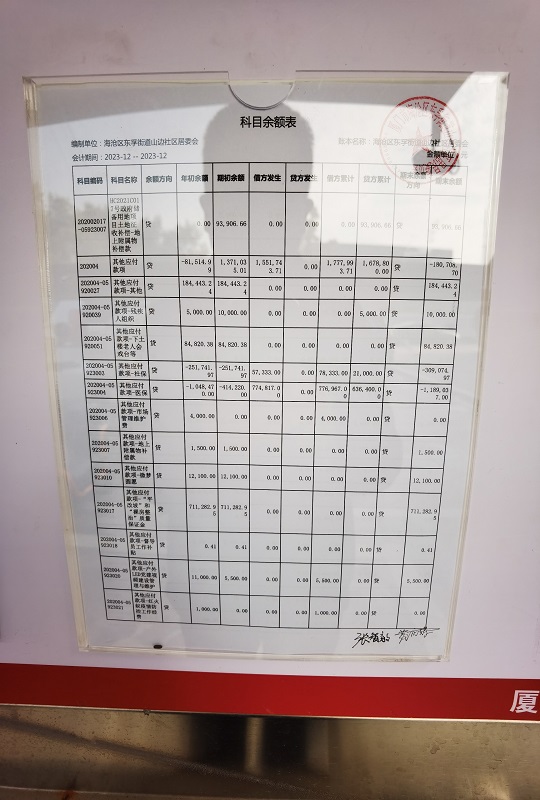 科目余额表
编制单位：海沧区东孚街道山边社区居委会 账本名称：海沧区东孚街道山边社区居委会
会计期间：2023-12 -- 2023-12 金额单位：元
科目编码 科目名称 余额方向 年初余额 期初余额 借方发生 贷方发生 借方累计 贷方累计 期末余额方向 期末余额
202002017-05923007 贷 0.00 93,906.66 0.00 0.00 0.00 93,906.66 贷 93,906.66
202004 其他应付款项 贷 -81,514.99 1,371,035.01 1,551,743.71 0.00 1,777,993.71 1,678,800.00 贷 -180,708.70
202004-05920027 其他应付款项-其他 贷 184,443.24 184,443.24 0.00 0.00 0.00 0.00 贷 184,443.24
202004-05920039 其他应付款项-残疾人组织 贷 5,000.00 10,000.00 0.00 0.00 0.00 5,000.00 贷 10,000.00
202004-05920051 其他应付款项-下土楼老人会戏台等 贷 84,820.38 84,820.38 0.00 0.00 0.00 0.00 贷 84,820.38
202004-05923003 其他应付款项-社保 贷 -251,741.97 -251,741.97 57,333.00 0.00 78,333.00 21,000.00 贷 -309,074.97
202004-05923004 其他应付款项-医保 贷 -1,048,470.00 -414,220.00 774,817.00 0.00 776,967.00 636,400.00 贷 -1,189,037.00
202004-05923006 其他应付款项-市场管理维护费 贷 4,000.00 0.00 0.00 0.00 4,000.00 0.00 贷 0.00
202004-05923007 其他应付款项-地上附属物补偿款 贷 1,500.00 1,500.00 0.00 0.00 0.00 0.00 贷 1,500.00
202004-05923010 其他应付款项-微梦圆愿 贷 12,100.00 12,100.00 0.00 0.00 0.00 0.00 贷 12,100.00
202004-05923017 其他应付款项-"平改坡"和"裸房整治"质量保证金 贷 711,282.95 711,282.95 0.00 0.00 0.00 0.00 贷 711,282.95
202004-05923018 其他应付款项-督导员工作补贴 贷 0.41 0.41 0.00 0.00 0.00 0.00 贷 0.41
202004-05923020 其他应付款项-户外LED党建 贷 11,000.00 5,500.00 0.00 0.00 5,500.00 0.00 贷 5,500.00
202004-05923021 其他应付款项-红火蚁疫情防控工作经费 贷 1,000.00 0.00 0.00 0.00 1,000.00 0.00 贷 0.00
厦